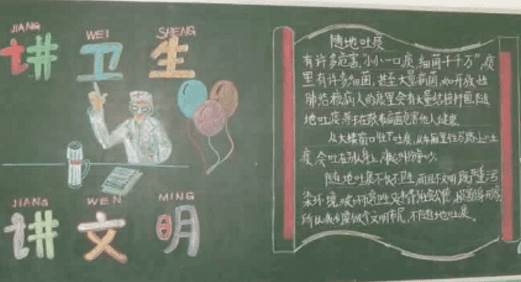 JIANG WEI SHENG
讲卫生
JIANG WEN MING
讲文明
随地吐痰
有许多危害,小小一口痰,细菌千千万"痰
里有许多细菌,甚至大量病菌,如开放性
肺结核病人的痰里会有大量结核杆菌,随
地吐痰等于在散布病菌危害他人健康
从大楼窗口往下吐痰,从车厢里往马路上吐
痰,会吐在别人身上
随地吐痰不仅不卫生,而且不文明,既严重污
染环境,破坏
所以我们要做个文明市民,不随地吐痰。